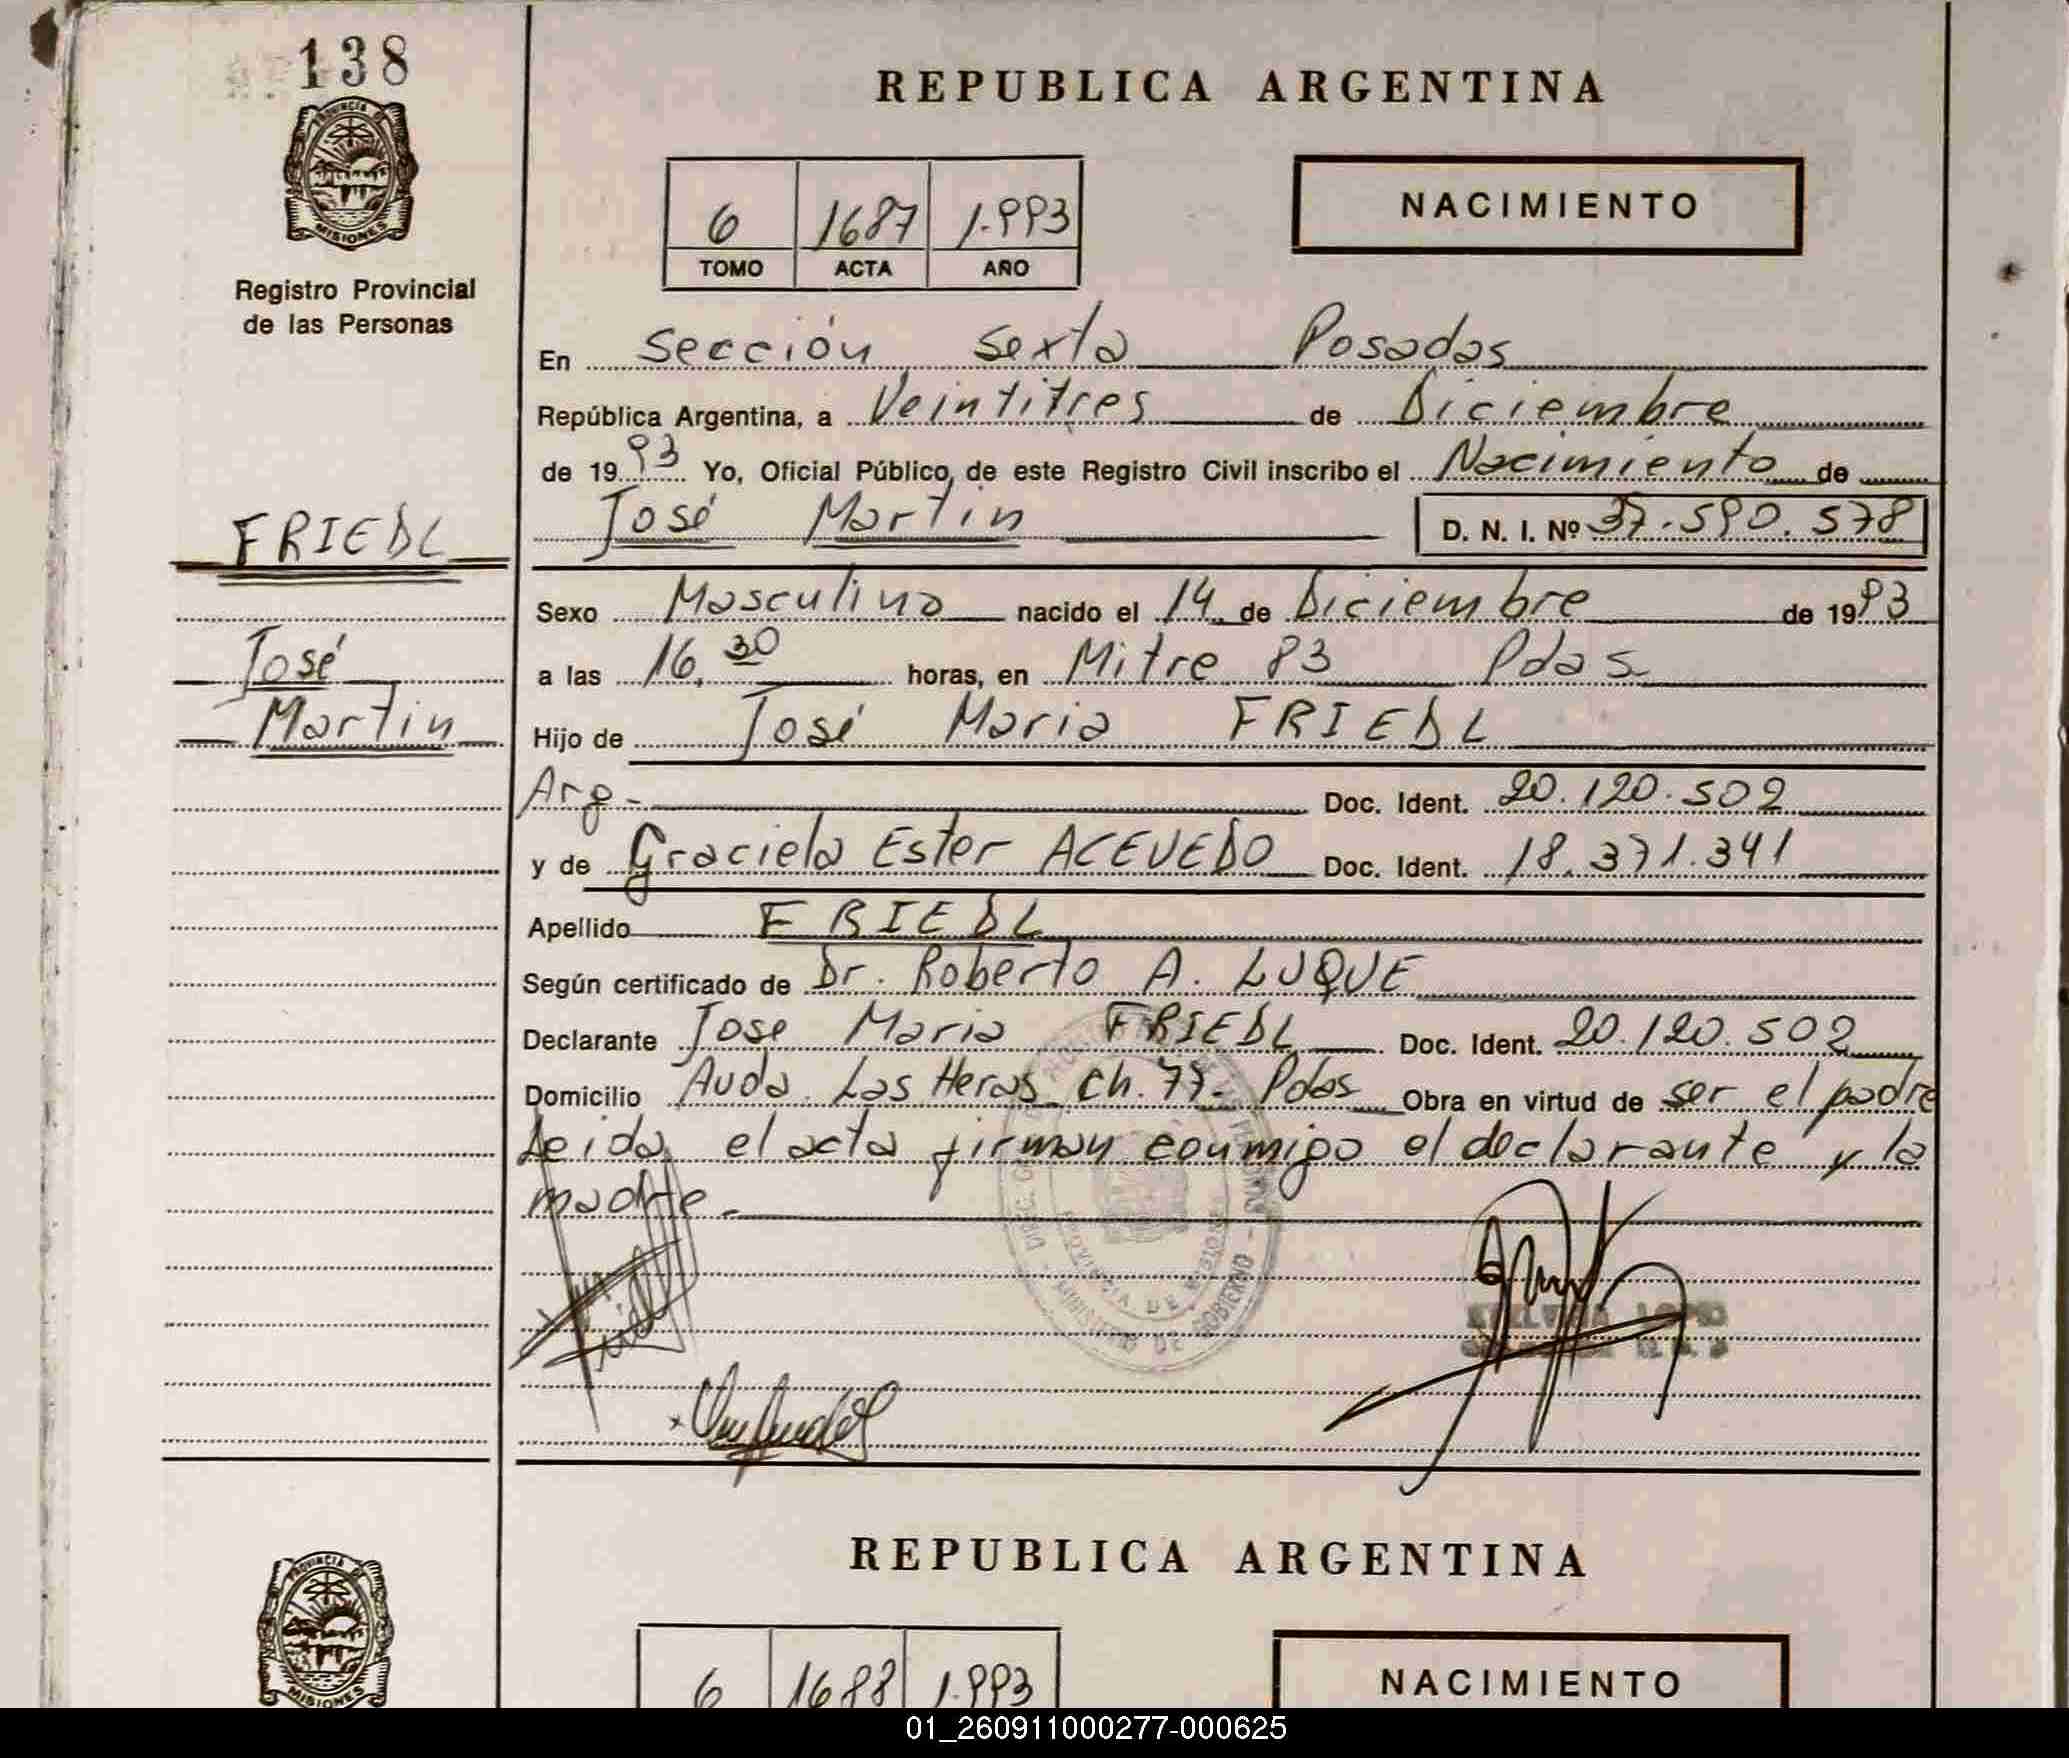 138
PROVINCIA DE
MISIONES
Registro Provincial
de las Personas
FRIEDL
José
Martin
REPUBLICA ARGENTINA
6 1687 1.993
TOMO ACTA AÑO
NACIMIENTO
En Sección Sexta Posadas
República Argentina, a Veintitres de Diciembre
de 1993 Yo, Oficial Público, de este Registro Civil inscribo el Nacimiento de
José Martin D. N. I. Nº 37.590.578
Sexo Masculino nacido el 14 de Diciembre de 1993
a las 16,30 horas, en Mitre 83 Pdas
Hijo de José Maria FRIEDL
Arg.- Doc. Ident. 20.120.502
y de Graciela Ester ACEVEDO Doc. Ident. 18.371.341
Apellido FRIEDL
Según certificado de Dr. Roberto A. LUQUE
Declarante Jose Maria FRIEDL Doc. Ident. 20.120.502
Domicilio Avda. Las Heras Ch. 77- Pdas Obra en virtud de ser el padre
Leida el acta firman conmigo el declarante y la
madre.-
PROVINCIA DE MISIONES
MINISTERIO DE GOBIERNO
REPUBLICA ARGENTINA
PROVINCIA DE
MISIONES
6 1688 1.993
NACIMIENTO
01_260911000277-000625